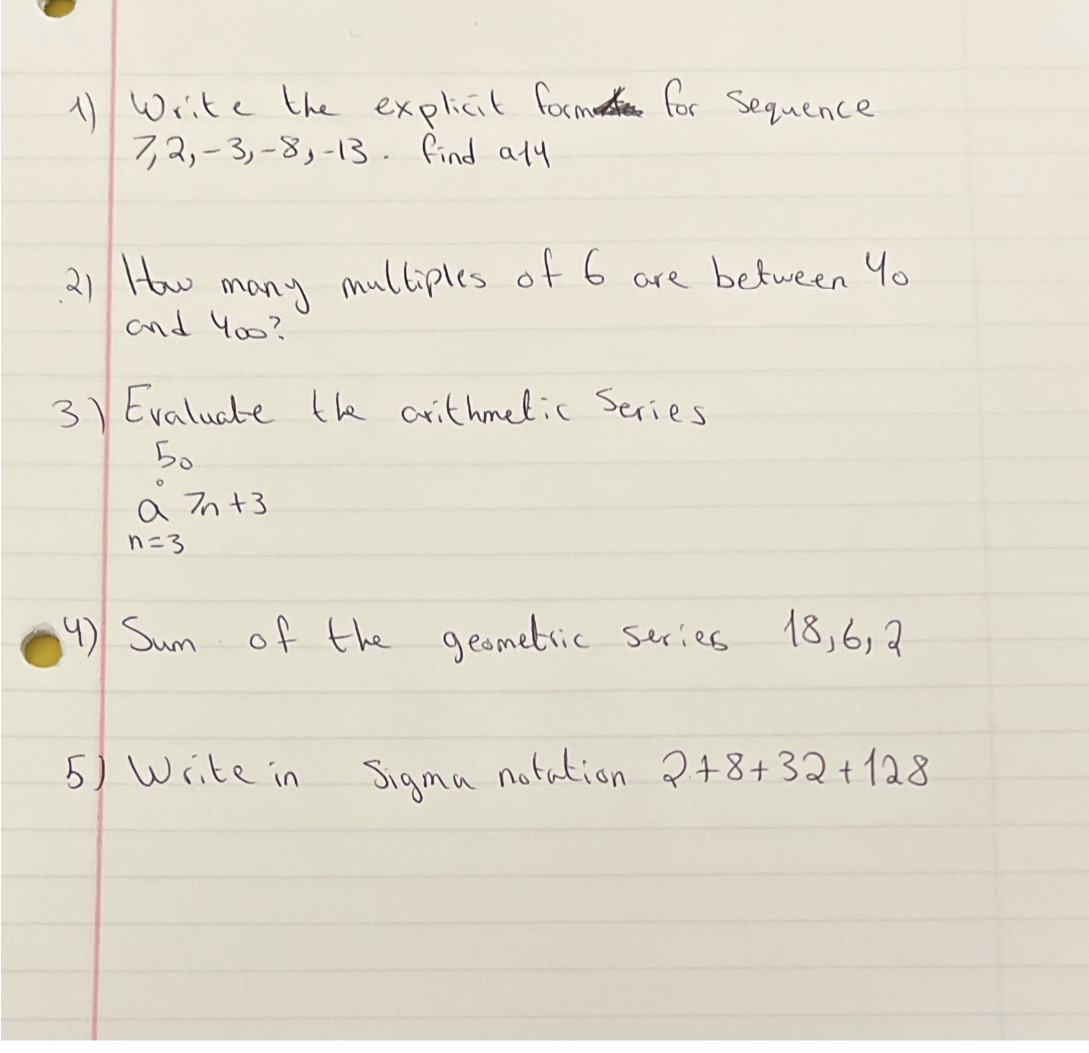 1) Write the explicit form for sequence
7,2,-3,-8,-13. find a14
2) How many multiples of 6 are between 40
and 400?
3) Evaluate the arithmetic Series
50
å 7n+3
n=3
4) Sum of the geometric series 18,6,2
5) Write in Sigma notation 2+8+32+128